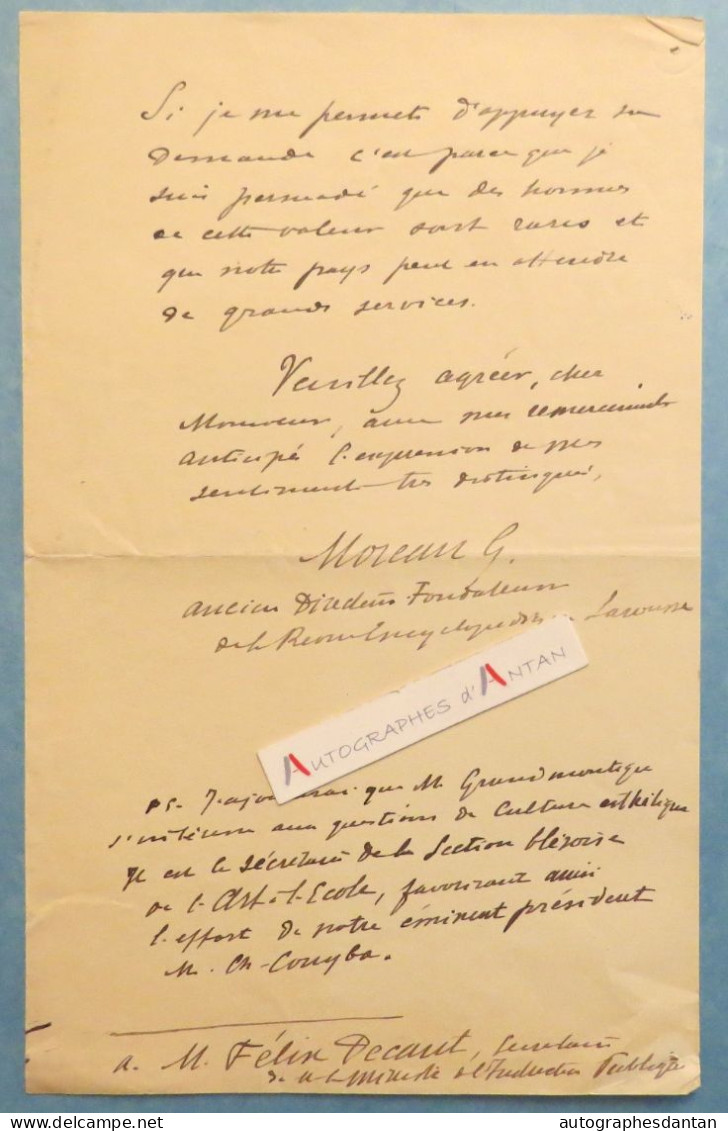 Si je me permets d'appuyer sa
demande c'est parce que je
suis persuadé que des hommes
de cette valeur sont rares et
que notre pays peut en attendre
de grands services.
Veuillez agréer, cher
Monsieur, avec mes remerciements
anticipés l'expression de mes
sentiments très distingués,
Moreau G.
ancien Directeur-Fondateur
de la Revue Encyclopédique Larousse
AUTOGRAPHES d'ANTAN
PS. J'ajouterai que M. Grandmontagne
s'intéresse aux questions de culture esthétique
Il est le secrétaire de la Section blésoise
de l'Art à l'Ecole, favorisant ainsi
l'effort de notre éminent président
M. Ch-Couyba.
a. M. Félix Decaut, secrétaire
de ministre de l'Instruction Publique
Delcampe.net
autographesdantan